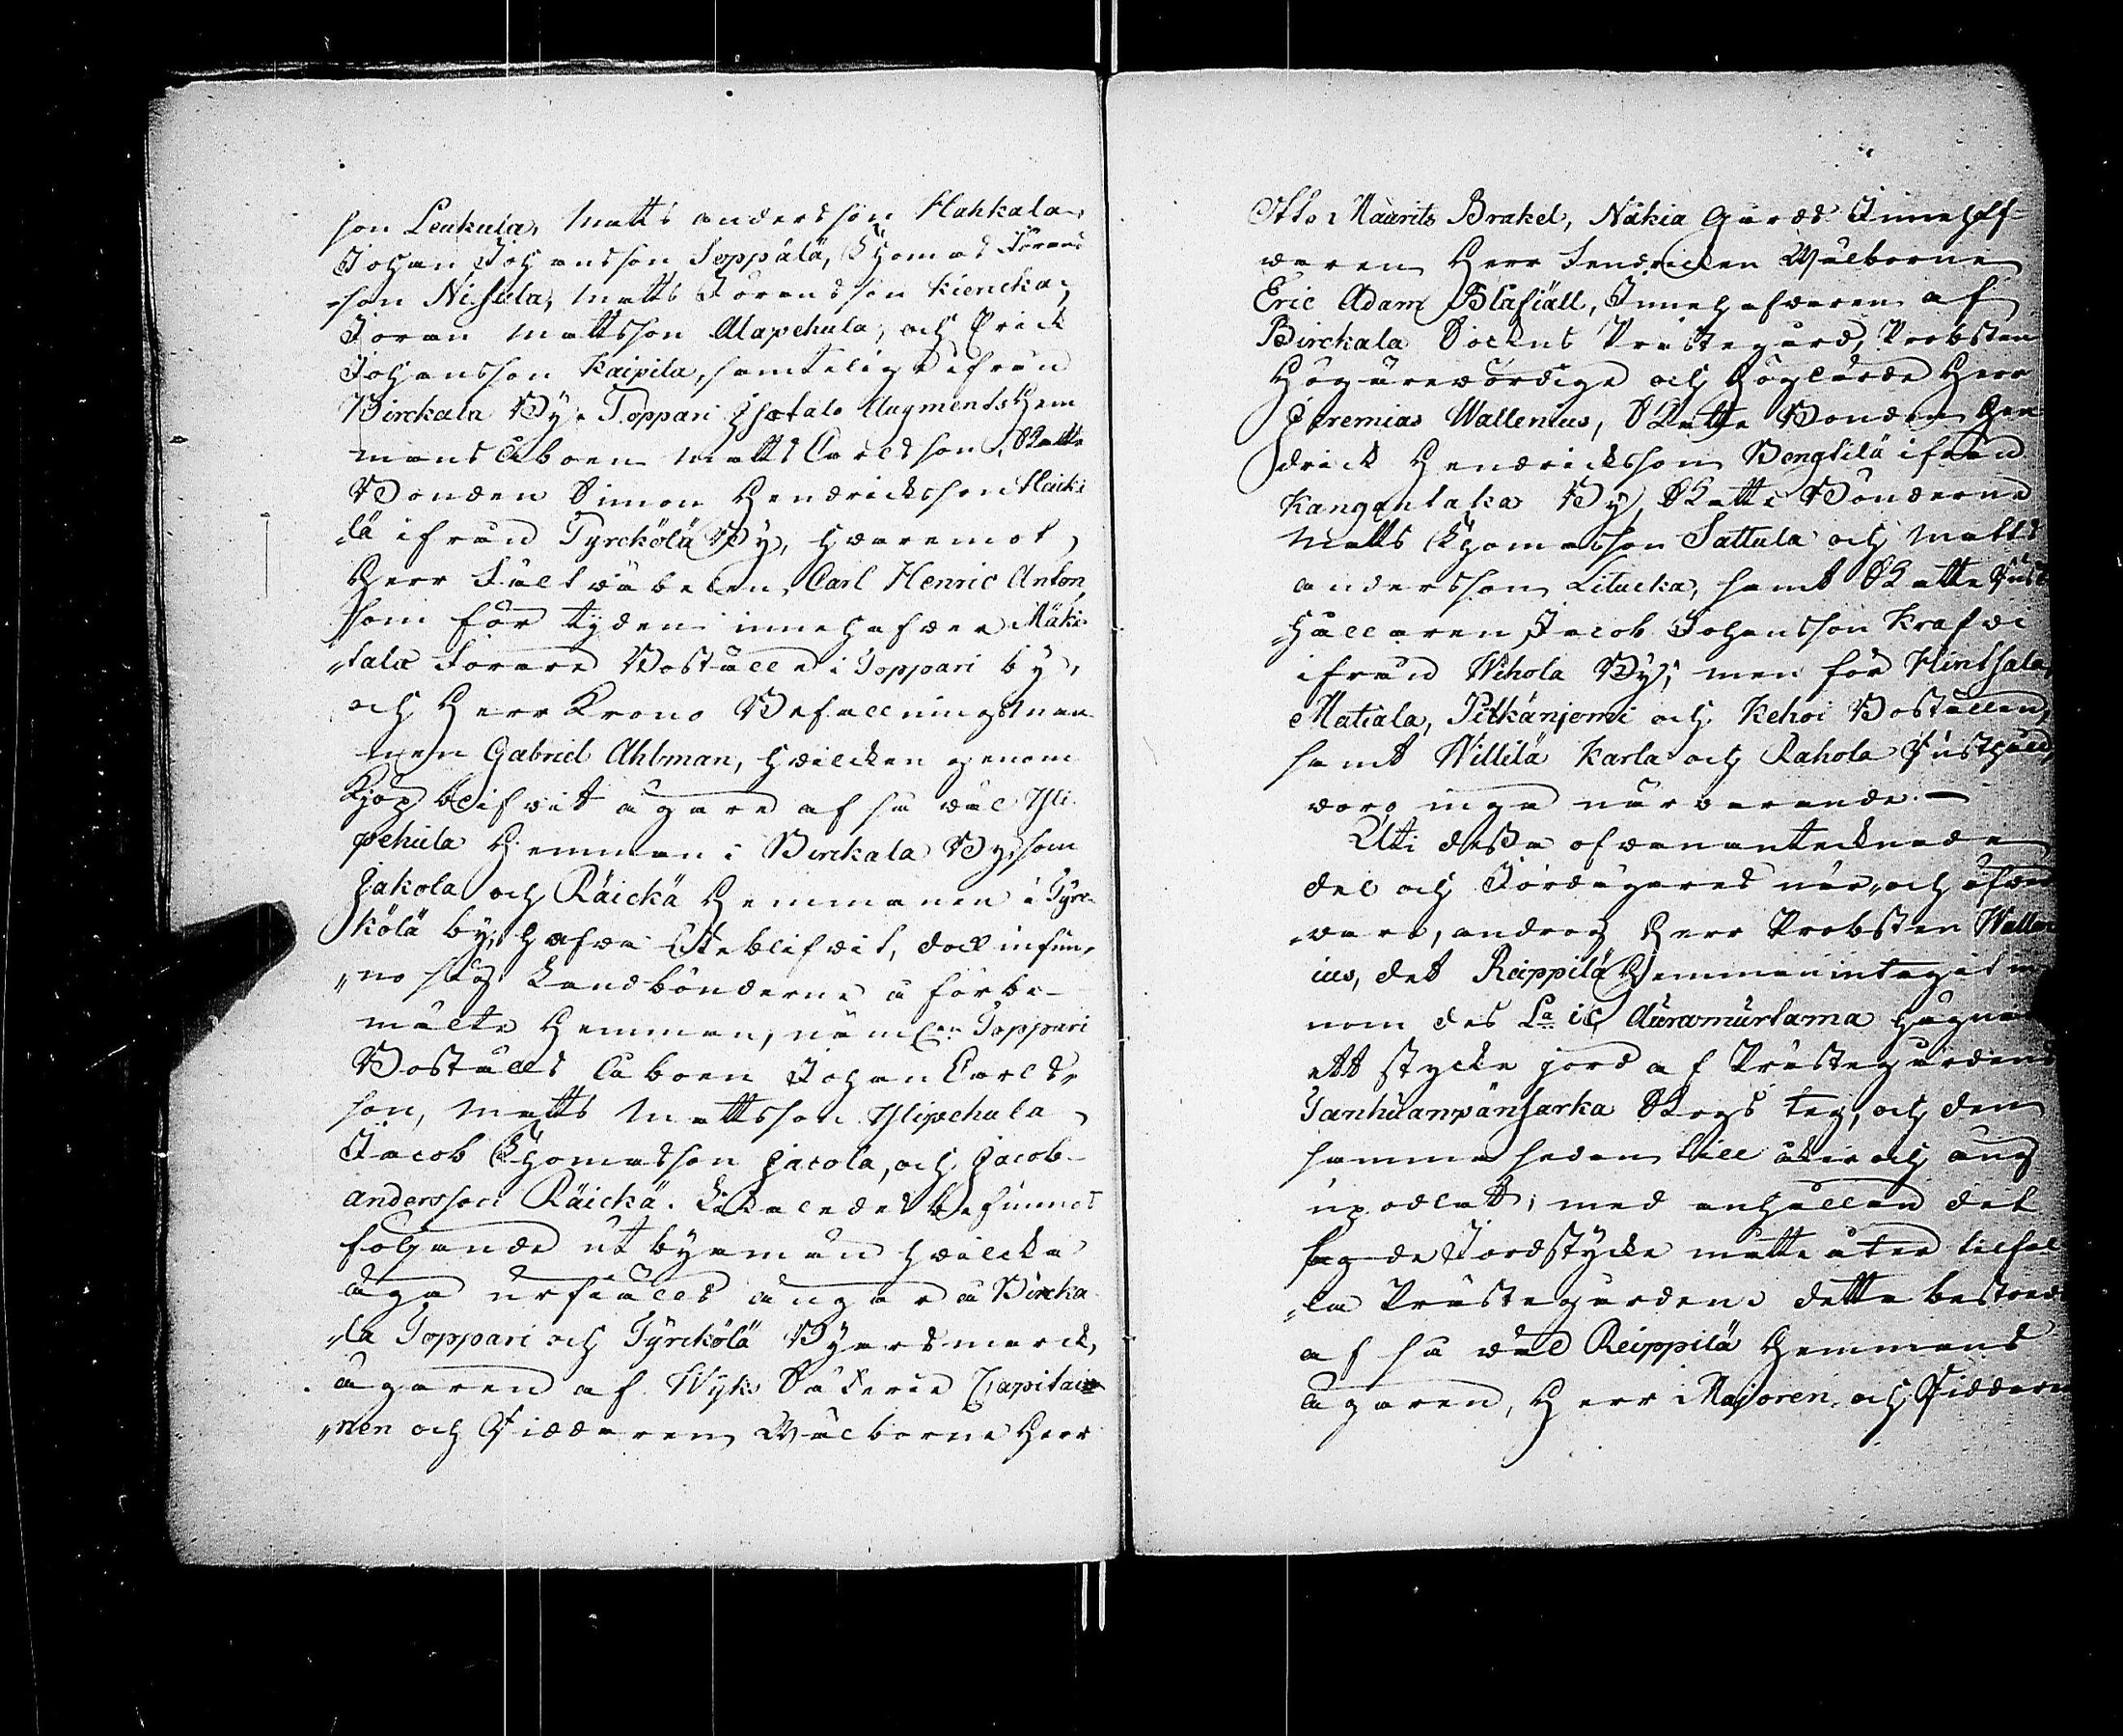 son Leukula, Matts andersson Hahkala,
Johan Johansson Seppälä, Thomas Jörans
-son Nisula, Matts Joransson Kiencka,
Joran Mattsson Alapehula, och Erick
Johansson Kaipila, samtelige ifrån
Birckala By. Toppari Hatalo Augments Hem
mans åboen Matts Carlsson, Skatte
Bonden Simon Hendricksson Haiki
lä ifrån Tyrckölä By, hvaremot
Herr Fältväbelen Carl Henric Anton,
som för tyden innehafver Mäki-
„tala Förare Boställe i Toppari by,
och Herr Krono Befallningsman
nen Gabriel Ahlman, hvilcken genom
Kjöp blifvit ägare af så väl Yli-
pehula Hemman i Birckala By, som
Jakola och Räickä Hemmanen i Tyrc-
kölä by, hafva uteblifvit, dock infun-
„no sig Landbönderne å förbe-
mälte Hemman, nämln Toppari
Boställs åboen Johan Carls-
son, Matts Mattsson Ylipehula
Jacob Thomasson Jacola, och Jacob
andersson Räickä. Likaledes befinnes
följande utbyamän hvilcka
äga urfiälls ängar å Bircka
„la Toppari och Tyrckölä Byars marck,
ägaren af Wijks Säterie Capitai
„nen och Riddaren Wälborne Herr
Otto Maurits Brakel, Näkia Gårds Innehaf-
varen Herr Fendricken Wälborne
Eric Adam Blafiäll, Innehafvaren af
Birckala Sockns Prästegård, Probsten
Högärevördige och Höglärde Herr
Jeremias Wallenius, Skatte Bonden Hen
drick Hendricksson Bengtilä ifrån
Kangantaka By, Skatte Bönderne
Matts Thomasson Sattula och Matts
andersson Litucka, samt Skatte Rust
hållaren Jacob Johansson Krafvi
ifrån Wihola By; men för Hintsala,
Matiala, Pitkänjemi och Kehoi Boställen,
samt Willilä Karla och Rahola Rusthåll,
voro inga närvarande. —
Uti dessa ofvanantecknade
del och Jordägares när„ och åfvan
„varo, androg Herr Probsten Wallen
ius, det Reippilä Hemman intagit in
nom des La Aurowmurlama hägnad
ett stycke jord af Prästegårdens
Tanhuanpänsarka Skogs teg, och den
samma sedan till åker och äng
upodlat; med anhållan det
sagde Jordstycke måtte åter tilfal
„la Prästegården. detta bestreds
af så väl Reippilä Hemmans
ägaren, Herr Majoren och Riddaren